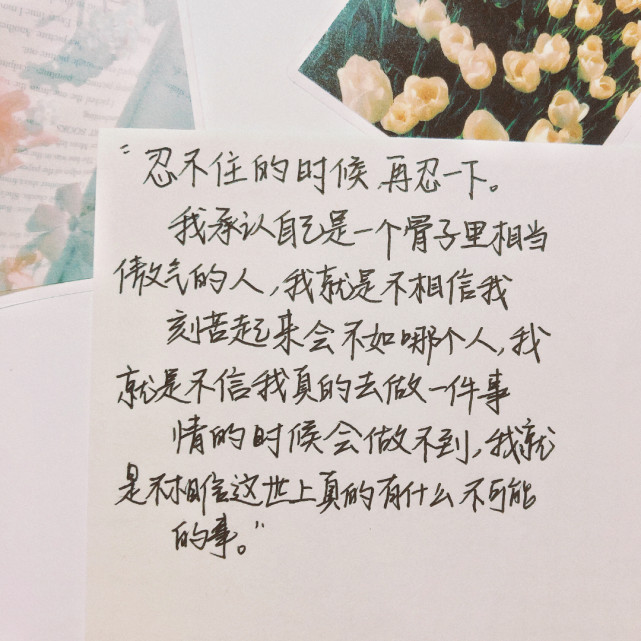 “忍不住的时候,再忍一下。
我承认自己是一个骨子里相当
傲气的人,我就是不相信我
刻苦起来会不如哪个人,我
就是不信我真的去做一件事
情的时候会做不到,我就
是不相信这世上真的有什么不可能
的事。”